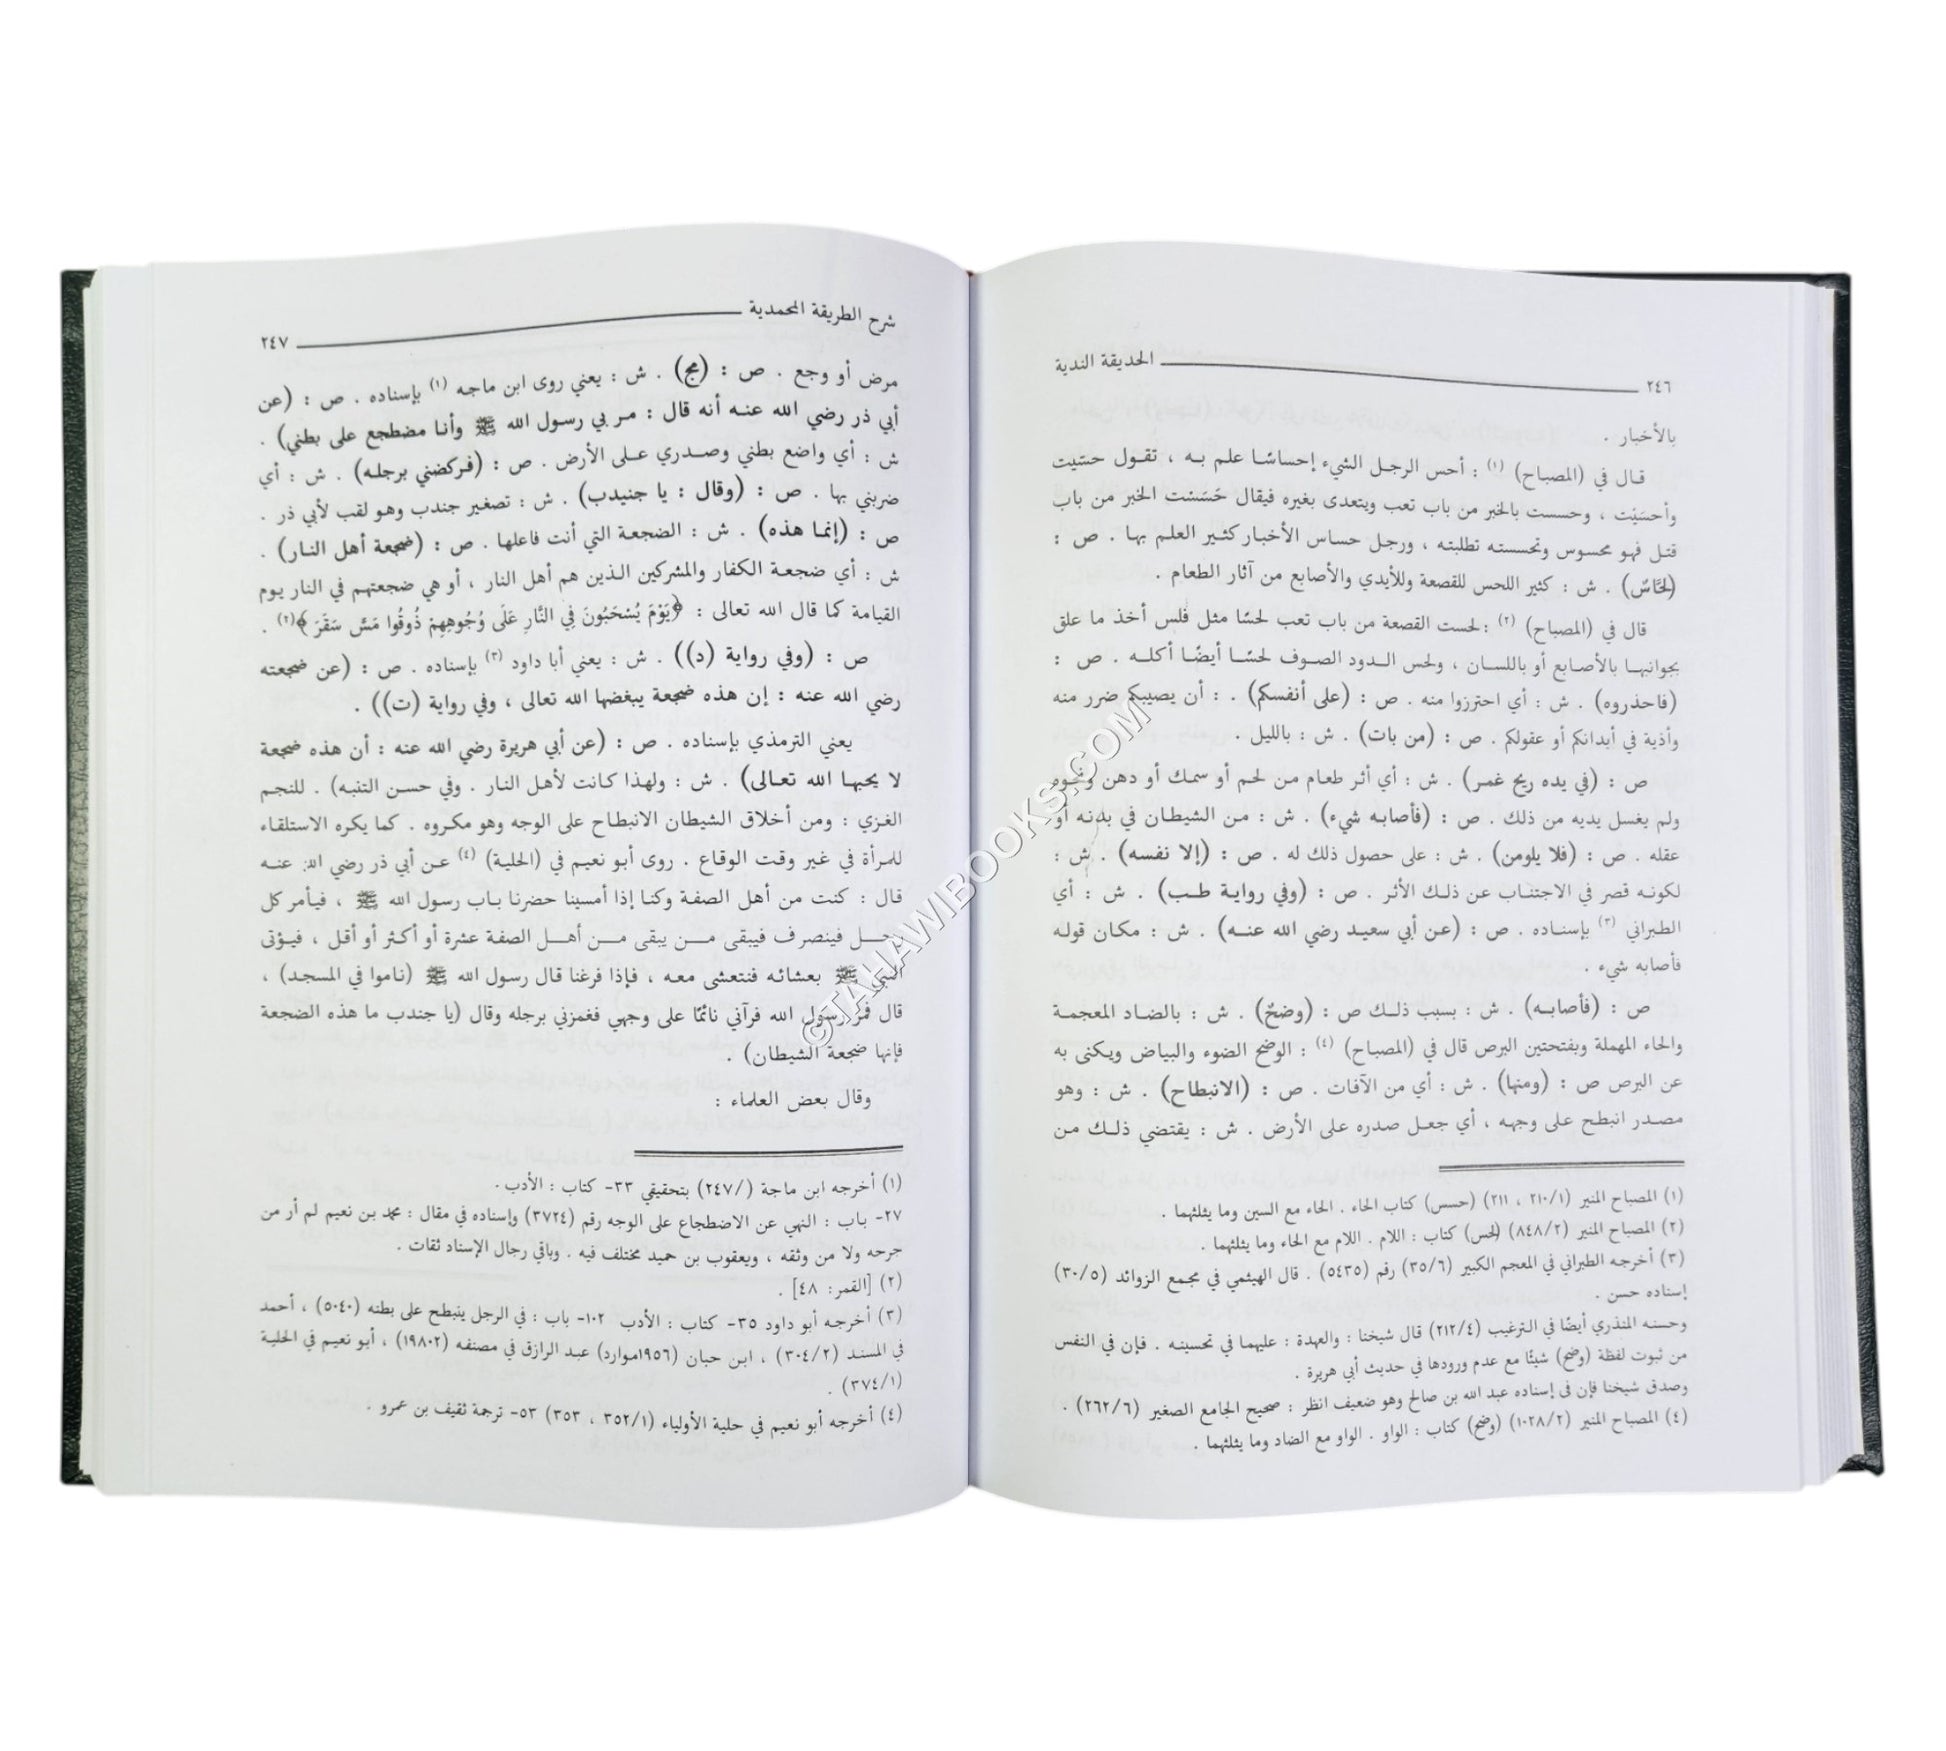 ٢٤٦ الحديقة الندية
بالأخبار .
قال في (المصباح) (١) : أحس الرجل الشيء إحساسًا علم به ، تقول حسَيت
وأحسَيْت ، وحسست بالخبر من باب تعب ويتعدى بغيره فيقال حَسَسْت الخبر من باب
قتل فهو محسوس وتحسسته تطلبته ، ورجل حساس الأخبار كثير العلم بها . ص :
(لحَّاسٌ) . ش : كثير اللحس للقصعة وللأيدي والأصابع من آثار الطعام .
قال في (المصباح) (٢) : لحست القصعة من باب تعب لحسًا مثل فلس أخذ ما علق
بجوانبها بالأصابع أو باللسان ، ولحس الدود الصوف لحسًا أيضًا أكله . ص :
(فاحذروه) . ش : أي احترزوا منه . ص : (على أنفسكم) . : أن يصيبكم ضرر منه
وأذية في أبدانكم أو عقولكم . ص : (من بات) . ش : بالليل .
ص : (في يده ريح غمر) . ش : أي أثر طعام من لحم أو سمك أو دهن ونحوه
ولم يغسل يديه من ذلك . ص : (فأصابه شيء) . ش : من الشيطان في بدنه أو
عقله . ص : (فلا يلومن) . ش : على حصول ذلك له . ص : (إلا نفسه) . ش :
لكونه قصر في الاجتناب عن ذلك الأثر . ص : (وفي رواية طب) . ش : أي
الطبراني (٣) بإسناده . ص : (عن أبي سعيد رضي الله عنه) . ش : مكان قوله
فأصابه شيء .
ص : (فأصابه) . ش : بسبب ذلك ص : (وضحٌ) . ش : بالضاد المعجمة
والحاء المهملة وبفتحتين البرص قال في (المصباح) (٤) : الوضح الضوء والبياض ويكنى به
عن البرص ص : (ومنها) . ش : أي من الآفات . ص : (الانبطاح) . ش : وهو
مصدر انبطح على وجهه ، أي جعل صدره على الأرض . ش : يقتضي ذلك من
(١) المصباح المنير (٢١٠/١ ، ٢١١) (حسس) كتاب الحاء . الحاء مع السين وما يثلثهما .
(٢) المصباح المنير (٨٤٨/٢) (لحس) كتاب : اللام . اللام مع الحاء وما يثلثهما .
(٣) أخرجه الطبراني في المعجم الكبير (٣٥/٦) رقم (٥٤٣٥) . قال الهيثمي في مجمع الزوائد (٣٠/٥)
إسناده حسن .
وحسنه المنذري أيضًا في الترغيب (٢١٢/٤) قال شيخنا : والعهدة : عليهما في تحسينه . فإن في النفس
من ثبوت لفظة (وضح) شيئًا مع عدم ورودها في حديث أبي هريرة .
وصدق شيخنا فإن فى إسناده عبد الله بن صالح وهو ضعيف انظر : صحيح الجامع الصغير (٢٦٢/٦) .
(٤) المصباح المنير (١٠٢٨/٢) (وضح) كتاب : الواو . الواو مع الضاد وما يثلثهما .
شرح الطريقة المحمدية ٢٤٧
مرض أو وجع . ص : (مج) . ش : يعني روى ابن ماجه (١) بإسناده . ص : (عن
أبي ذر رضي الله عنه أنه قال : مر بي رسول الله ﷺ وأنا مضطجع على بطني) .
ش : أي واضع بطني وصدري على الأرض . ص : (فركضني برجله) . ش : أي
ضربني بها . ص : (وقال : يا جنيدب) . ش : تصغير جندب وهو لقب لأبي ذر .
ص : (إنما هذه) . ش : الضجعة التي أنت فاعلها . ص : (ضجعة أهل النار) .
ش : أي ضجعة الكفار والمشركين الذين هم أهل النار ، أو هي ضجعتهم في النار يوم
القيامة كما قال الله تعالى : ﴿يَوْمَ يُسْحَبُونَ فِي النَّارِ عَلَى وُجُوهِهِمْ ذُوقُوا مَسَّ سَقَرَ﴾(٢) .
ص : (وفي رواية (د)) . ش : يعني أبا داود (٣) بإسناده . ص : (عن ضجعته
رضي الله عنه : إن هذه ضجعة يبغضها الله تعالى ، وفي رواية (ت)) .
يعني الترمذي بإسناده . ص : (عن أبي هريرة رضي الله عنه : أن هذه ضجعة
لا يحبها الله تعالى) . ش : ولهذا كانت لأهل النار . وفي حسن التنبه) . للنجم
الغزي : ومن أخلاق الشيطان الانبطاح على الوجه وهو مكروه . كما يكره الاستلقاء
للمرأة في غير وقت الوقاع . روى أبو نعيم في (الحلية) (٤) عن أبي ذر رضي الله عنه
قال : كنت من أهل الصفة وكنا إذا أمسينا حضرنا باب رسول الله ﷺ ، فيأمر كل
رجل فينصرف فيبقى من يبقى من أهل الصفة عشرة أو أكثر أو أقل ، فيؤتى
النبي ﷺ بعشائه فنتعشى معه ، فإذا فرغنا قال رسول الله ﷺ (ناموا في المسجد) ،
قال فمر رسول الله فرآني نائمًا على وجهي فغمزني برجله وقال (يا جندب ما هذه الضجعة
فإنها ضجعة الشيطان) .
وقال بعض العلماء :
(١) أخرجه ابن ماجة (/٢٤٧) بتحقيقي ٣٣- كتاب : الأدب .
٢٧- باب : النهي عن الاضطجاع على الوجه رقم (٣٧٢٤) وإسناده في مقال : محمد بن نعيم لم أر من
جرحه ولا من وثقه ، ويعقوب بن حميد مختلف فيه . وباقي رجال الإسناد ثقات .
(٢) [القمر: ٤٨] .
(٣) أخرجه أبو داود ٣٥- كتاب : الأدب ١٠٢- باب : في الرجل ينبطح على بطنه (٥٠٤٠) ، أحمد
في المسند (٣٠٤/٢) ، ابن حبان (١٩٥٦موارد) عبد الرازق في مصنفه (١٩٨٠٢) ، أبو نعيم في الحلية
(٣٧٤/١) .
(٤) أخرجه أبو نعيم في حلية الأولياء (٣٥٢/١ ، ٣٥٣) ٥٣- ترجمة ثقيف بن عمرو .
©TAHAWIBOOKS.COM